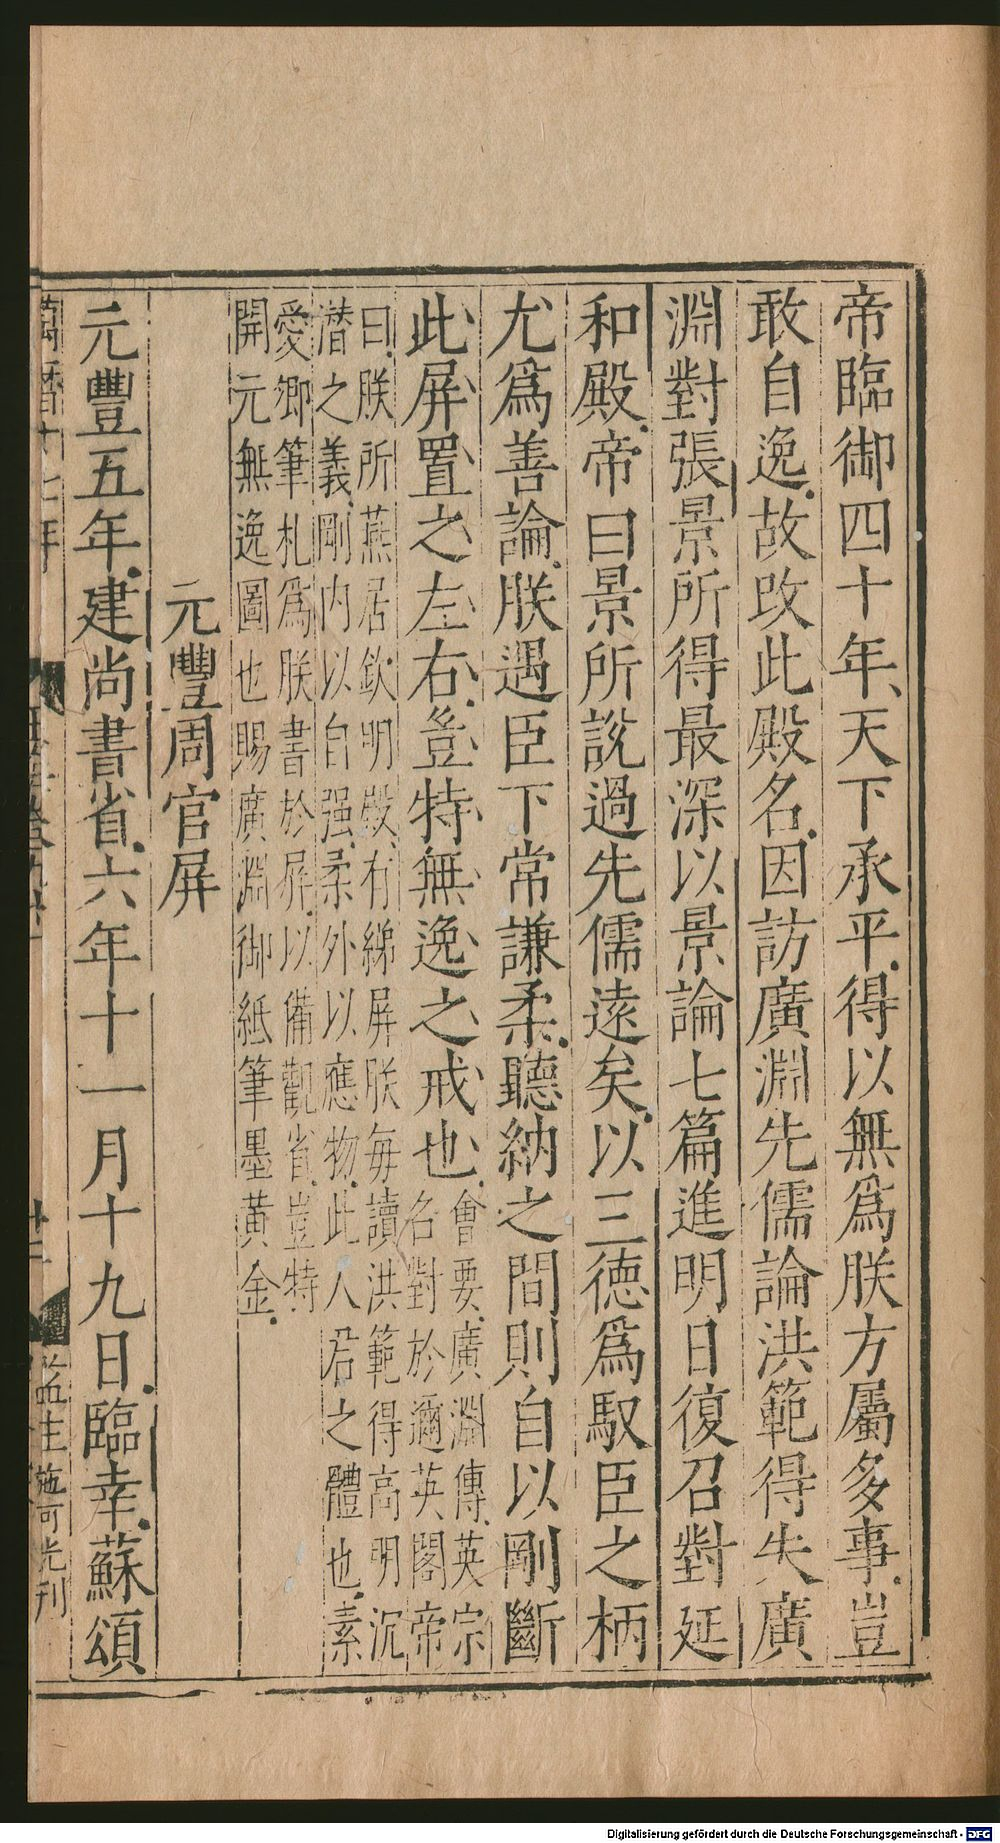 帝臨御四十年、天下承平.得以無爲朕方屬多事.豈
敢自逸.故改此殿名.因訪廣淵先儒論洪範得失廣
淵對張景所得最深以景論七篇進明日復召對延
和殿.帝曰景所說過先儒遠矣.以三德爲馭臣之柄
尤爲善論.朕遇臣下常謙柔.聽納之間則自以剛斷
此屏置之左右.豈特無逸之戒也.會要.廣淵傳.英宗
名對於邇英閣帝
曰.朕所燕居欽明殿.有綈屏朕每讀洪範得高明沉
潛之義.剛內以自强.柔外以應物.此人君之體也.素
愛卿筆札爲朕書於屏.以備觀省.豈特
開元無逸圖也賜廣淵御紙筆墨黃金.
元豐周官屏
元豐五年.建尚書省.六年十一月十九日.臨幸.蘇頌
萬曆十七年
監生施可光刊
Digitalisierung gefördert durch die Deutsche Forschungsgemeinschaft - DFG